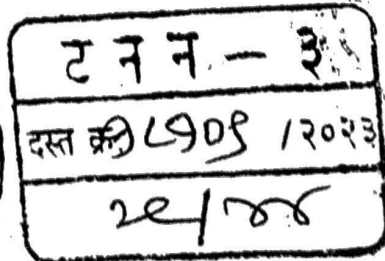 ट न न - ३
दस्त क्र. ८७०९ /२०२३
२८/४४